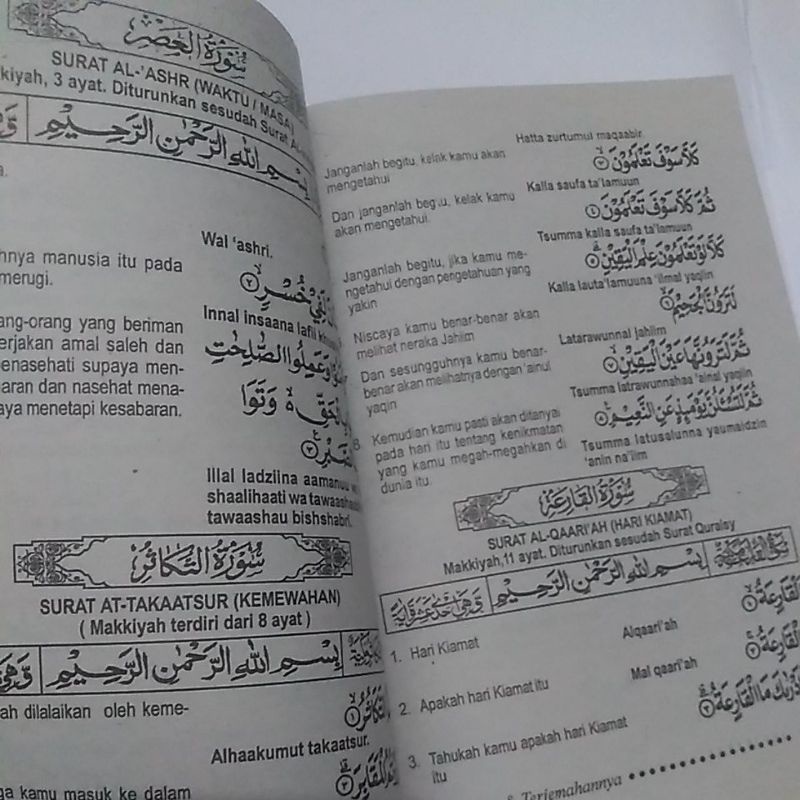 سُوْرَةُ الْعَصْرِ
SURAT AL-'ASHR (WAKTU / MASA)
kkiyah, 3 ayat. Diturunkan sesudah Surat
بِسْمِ اللهِ الرَّحْمٰنِ الرَّحِيْمِ
a.
Wal 'ashri.
hnya manusia itu pada
merugi.
لَفِيْ خُسْرٍۙ ﴿٢﴾
Innal insaana lafii
ang-orang yang beriman
erjakan amal saleh dan
enasehati supaya men-
aran dan nasehat mena-
aya menetapi kesabaran.
وَعَمِلُوا الصّٰلِحٰتِ
بِالْحَقِّ ەۙ وَتَوَا
Illal ladziina aamanuu
shaalihaati wa tawaashau
tawaashau bishshabri.
سُوْرَةُ التَّكَاثُرُ
SURAT AT-TAKAATSUR (KEMEWAHAN)
( Makkiyah terdiri dari 8 ayat )
بِسْمِ اللهِ الرَّحْمٰنِ الرَّحِيْمِ
وَهِيَ
ah dilalaikan oleh keme-
التَّكَاثُرُۙ ﴿١﴾
Alhaakumut takaatsur.
ga kamu masuk ke dalam
الْمَقَابِرَۗ ﴿٢﴾
Hatta zurtumul maqaabir.
Janganlah begitu, kelak kamu akan
mengetahui
كَلَّا سَوْفَ تَعْلَمُوْنَۙ ﴿٣﴾
Kalla saufa ta'lamuun
Dan janganlah begitu, kelak kamu
akan mengetahui.
ثُمَّ كَلَّا سَوْفَ تَعْلَمُوْنَ ﴿٤﴾
Tsumma kalla saufa ta'lamuun
Janganlah begitu, jika kamu me-
ngetahui dengan pengetahuan yang
yakin
كَلَّا لَوْ تَعْلَمُوْنَ عِلْمَ الْيَقِيْنِۗ ﴿٥﴾
Kalla lauta'lamuuna 'ilmal yaqiin
Niscaya kamu benar-benar akan
melihat neraka Jahiim
لَتَرَوُنَّ الْجَحِيْمَۙ ﴿٦﴾
Latarawunnal jahiim
Dan sesungguhnya kamu benar-
benar akan melihatnya dengan 'ainul
yaqin
ثُمَّ لَتَرَوُنَّهَا عَيْنَ الْيَقِيْنِۙ ﴿٧﴾
Tsumma latrawunnahaa 'ainal yaqiin
8. Kemudian kamu pasti akan ditanyai
pada hari itu tentang kenikmatan
yang kamu megah-megahkan di
dunia itu.
ثُمَّ لَتُسْـَٔلُنَّ يَوْمَىِٕذٍ عَنِ النَّعِيْمِ ﴿٨﴾
Tsumma latusslunna yaumaidzin
'anin na'iim
سُوْرَةُ الْقَارِعَةُ
SURAT AL-QAARI'AH (HARI KIAMAT)
Makkiyah,11 ayat. Diturunkan sesudah Surat Quraisy
بِسْمِ اللهِ الرَّحْمٰنِ الرَّحِيْمِ
1. Hari Kiamat
اَلْقَارِعَةُۙ ﴿١﴾
Alqaari'ah
2. Apakah hari Kiamat itu
الْقَارِعَةُۚ ﴿٢﴾
Mal qaari'ah
3. Tahukah kamu apakah hari Kiamat
itu
اَدْرٰىكَ مَا الْقَارِعَةُۗ
& Terjemahannya